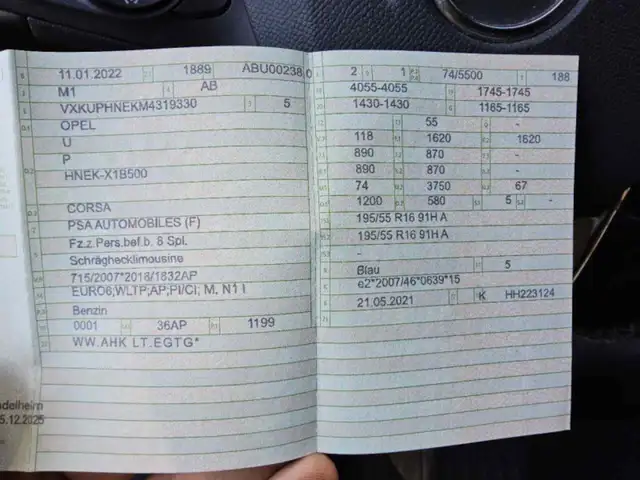 11.01.2022 1889 ABU00238 0
M1 AB
VXKUPHNEKM4319330 5
OPEL
U
P
HNEK-X1B500
CORSA
PSA AUTOMOBILES (F)
Fz.z.Pers.bef.b. 8 Spl.
Schräghecklimousine
715/2007*2018/1832AP
EURO6;WLTP;AP;PI/CI; M, N1 I
Benzin
0001 36AP 1199
WW.AHK LT.EGTG*
delheim
5.12.2025
2 1 74/5500 188
4055-4055 1745-1745
1430-1430 1165-1165
- 55 -
118 1620 1620
890 870 -
890 870 -
74 3750 67
1200 580 5 -
195/55 R16 91H A
195/55 R16 91H A
-
Blau 5
e2*2007/46*0639*15
21.05.2021 K HH223124